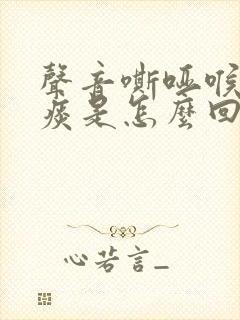 聲音嘶啞喉
痰是怎麼回
心若言_